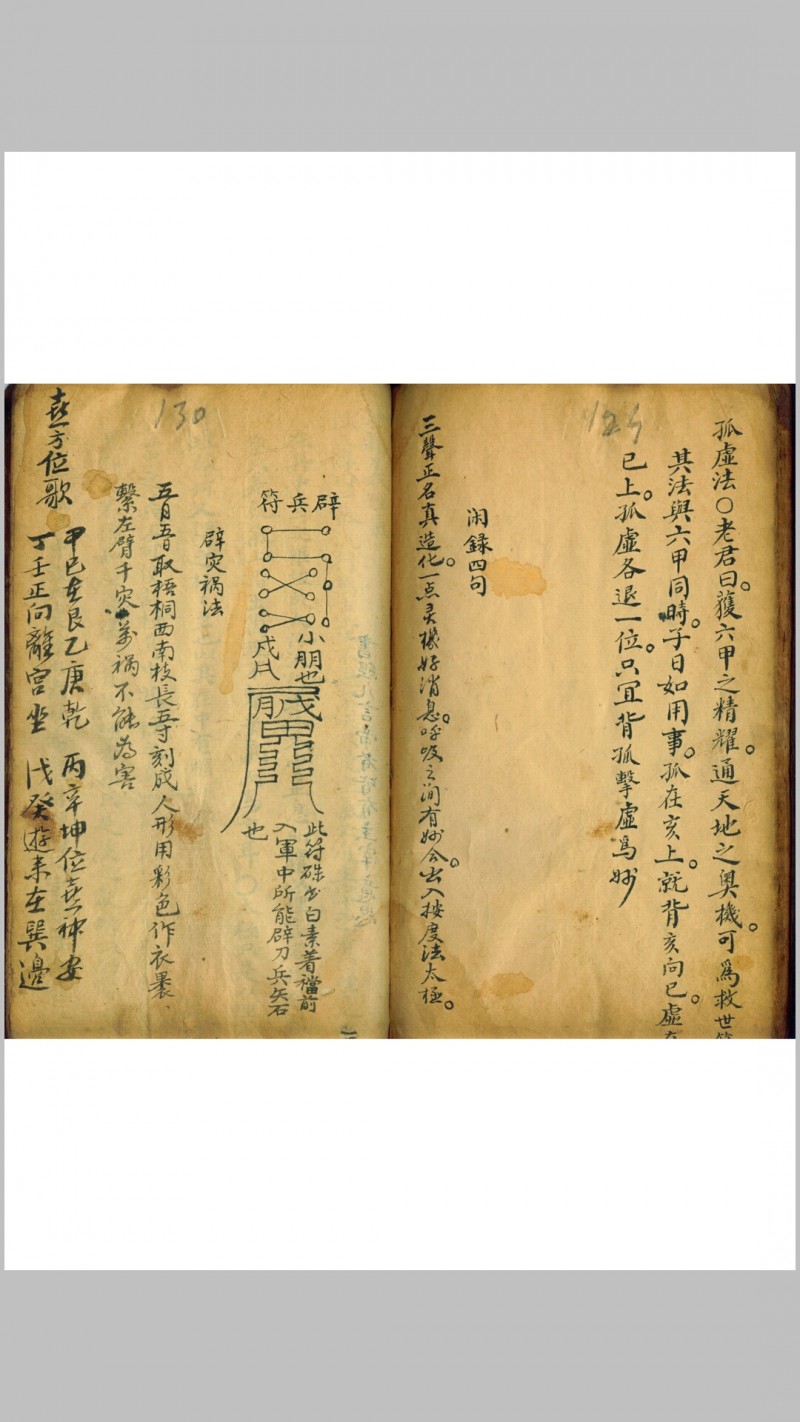 孤虛法○老君曰。獲六甲之精耀。通天地之奧機。可爲救世
其法與六甲同時。子日如用事。孤在亥上。就背亥向巳。虛在
巳上。孤虛各退一位。只宜背孤擊虛爲妙
闲錄四句
三聲正名真造化。一点灵機好消息。呼吸之间有妙合。出入按度法太極。
130
辟兵符
小朋也
戍
此符硃书白素着襠前
入軍中所能辟刀兵矢石
也
辟灾祸法
五月五日取梧桐西南枝長五寸刻成人形用彩色作衣裹、
繫左臂千灾萬祸不能為害
喜方位歌
甲己在艮乙庚乾 丙辛坤位喜神安
丁壬正向離宮坐 戊癸遊来在巽邊